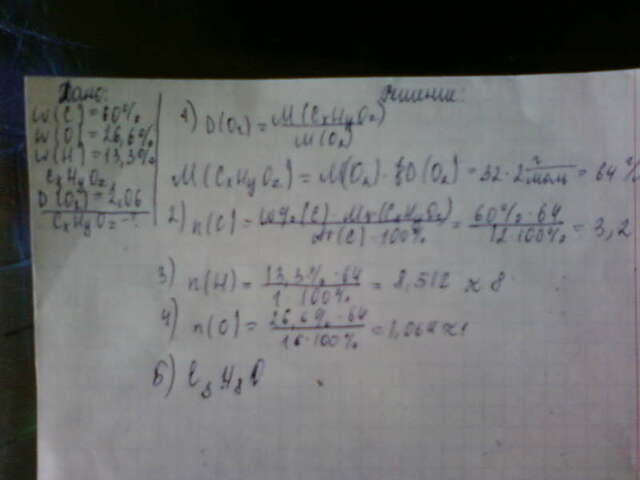 Дано:
w(C) = 60%
w(O) = 26,6%
w(H) = 13,3%
CxHyOz
D(O2) = 2,06
CxHyOz - ?
Решение:
1) D(O2) = M(CxHyOz) / M(O2)
M(CxHyOz) = M(O2) · D(O2) = 32 · 2 г/моль = 64
2) n(C) = w%(C) · Mr(CxHyOz) / Ar(C) · 100% = 60% · 64 / 12 · 100% = 3,2
3) n(H) = 13,3% · 64 / 1 · 100% = 8,512 ≈ 8
4) n(O) = 26,6% · 64 / 16 · 100% = 1,064 ≈ 1
5) C3H8O